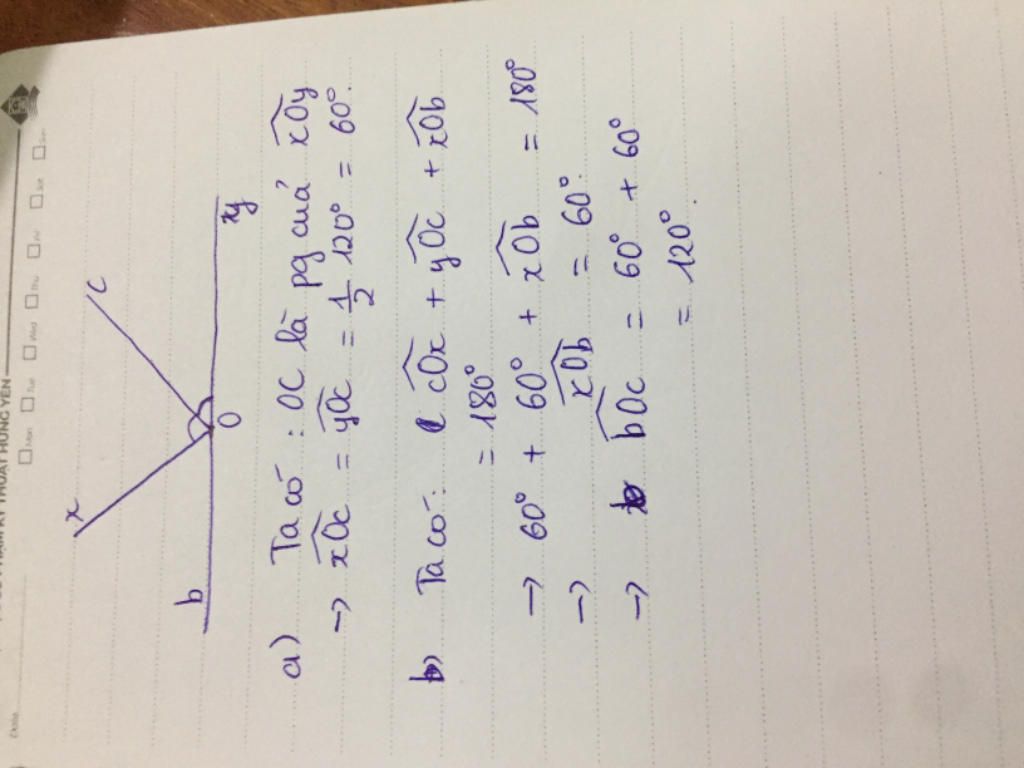 KỸ THUẬT HƯNG YÊN
Date
Mon Tue Wed Thu Fri Sat Sun
x
c
b
O
y
a) Ta có : OC là pg cuả xOy
→ xOc = yOc = 1/2 120° = 60°.
b) Ta có : cOx + yOc + xOb
= 180°
→ 60° + 60° + xOb = 180°
→ xOb = 60°.
→ bOc = 60° + 60°
= 120°.